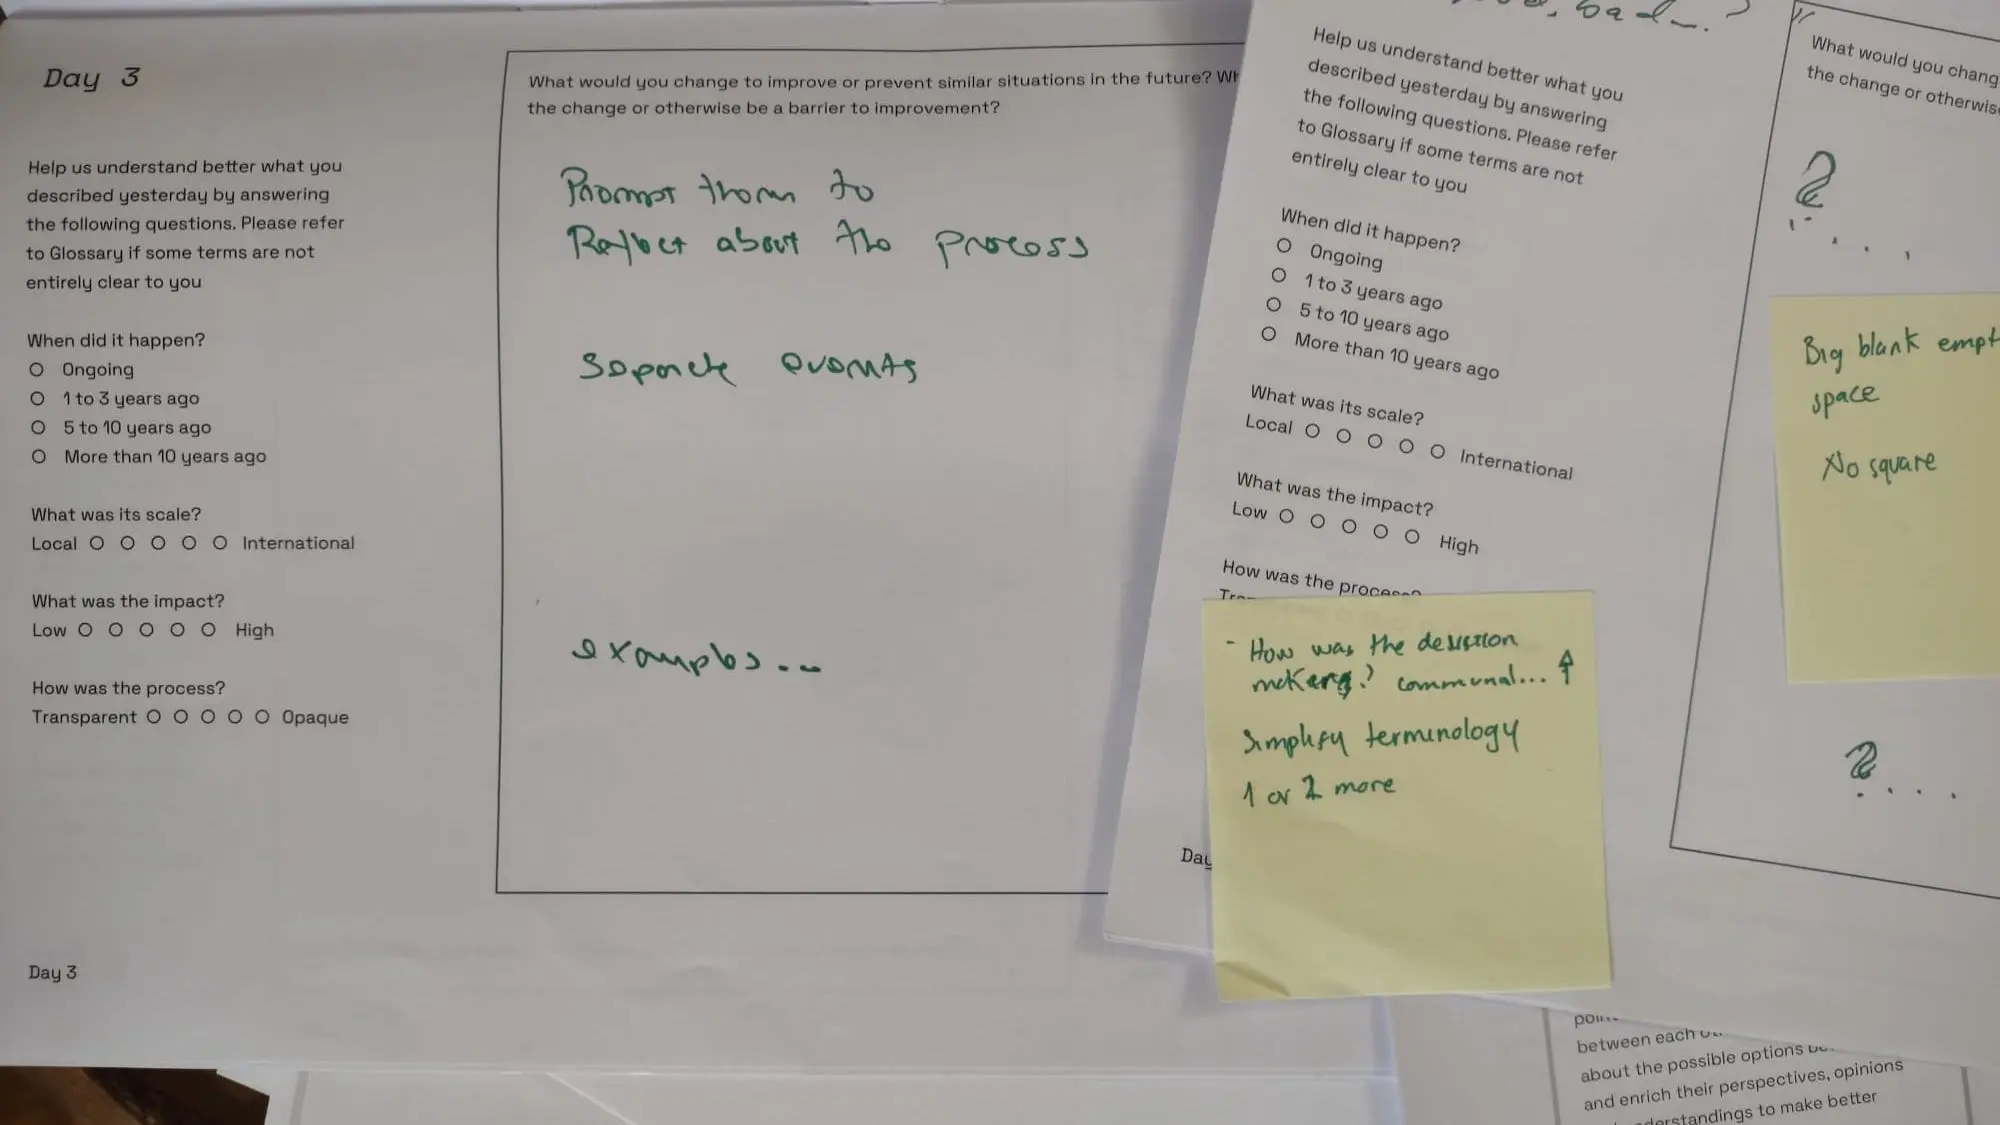 Day 3
Help us understand better what you
described yesterday by answering
the following questions. Please refer
to Glossary if some terms are not
entirely clear to you
When did it happen?
Ongoing
1 to 3 years ago
5 to 10 years ago
More than 10 years ago
What was its scale?
Local International
What was the impact?
Low High
How was the process?
Transparent Opaque
Day 3
What would you change to improve or prevent similar situations in the future?
the change or otherwise be a barrier to improvement?
Prompt them to
Reflect about the process
Separate events
examples...
bad...?
Help us understand better what you
described yesterday by answering
the following questions. Please refer
to Glossary if some terms are not
entirely clear to you
When did it happen?
Ongoing
1 to 3 years ago
5 to 10 years ago
More than 10 years ago
What was its scale?
Local International
What was the impact?
Low High
How was the process?
- How was the desistion
making? communal... ↑
Simplify terminology
1 or 2 more
Day
What would you chang
the change or otherwis
?....
Big blank empt
space
No square
?....
between each
about the possible options
and enrich their perspectives, opinions
derstandings to make better